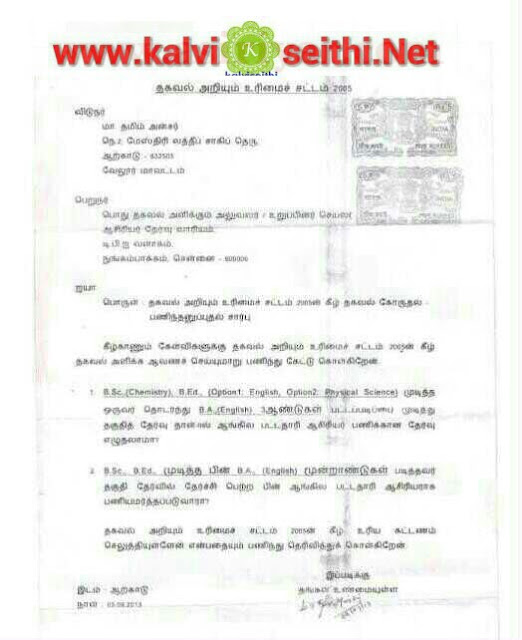 www.kalvi K seithi.Net
kalviseithi
தகவல் அறியும் உரிமைச் சட்டம் 2005
விடுநர்
மா. தமிம் அன்சர்
நெ.2, மேஸ்திரி லத்தீப் சாகிப் தெரு,
ஆற்காடு - 632503
வேலூர் மாவட்டம்
பெறுநர்
பொது தகவல் அளிக்கும் அலுவலர் / உறுப்பினர் செயலர்
ஆசிரியர் தேர்வு வாரியம்,
டி.பி.ஐ வளாகம்,
நுங்கம்பாக்கம், சென்னை - 600006
ஐயா
பொருள் : தகவல் அறியும் உரிமைச் சட்டம் 2005ன் கீழ் தகவல் கோருதல் -
பணிந்தனுப்புதல் சார்பு
கீழ்காணும் கேள்விகளுக்கு தகவல் அறியும் உரிமைச் சட்டம் 2005ன் கீழ்
தகவல் அளிக்க ஆவணச் செய்யுமாறு பணிந்து கேட்டு கொள்கிறேன்.
1. B.Sc.,(Chemistry), B.Ed., (Option1: English, Option2: Physical Science) முடித்த
ஒருவர் தொடர்ந்து B.A.,(English) 3ஆண்டுகள் பட்டப்படிப்பை முடித்து
தகுதித் தேர்வு தாள்-II ஆங்கில பட்டதாரி ஆசிரியர் பணிக்கான தேர்வு
எழுதலாமா?
2. B.Sc., B.Ed., முடித்த பின் B.A., (English) மூன்றாண்டுகள் படித்தவர்
தகுதி தேர்வில் தேர்ச்சி பெற்ற பின் ஆங்கில பட்டதாரி ஆசிரியராக
பணியமர்த்தப்படுவாரா?
தகவல் அறியும் உரிமைச் சட்டம் 2005ன் கீழ் உரிய கட்டணம்
செலுத்தியுள்ளேன் என்பதையும் பணிந்து தெரிவித்துக் கொள்கிறேன்.
இப்படிக்கு
இடம் : ஆற்காடு
தங்கள் உண்மையுள்ள
நாள் : 03.08.2013